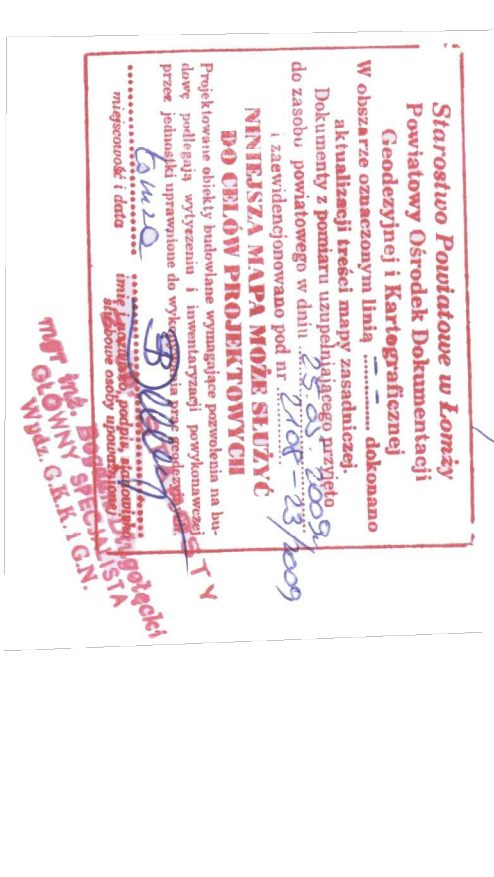 Starostwo Powiatowe w Łomży
Powiatowy Ośrodek Dokumentacji
Geodezyjnej i Kartograficznej
W obszarze oznaczonym linią – – dokonano
aktualizacji treści mapy zasadniczej.
Dokumenty z pomiaru uzupełniającego przyjęto
do zasobu powiatowego w dniu 25 03. 2009
i zaewidencjonowano pod nr 2108-23/2009
NINIEJSZA MAPA MOŻE SŁUŻYĆ
DO CELÓW PROJEKTOWYCH
Projektowane obiekty budowlane wymagające pozwolenia na bu-
dowę podlegają wytyczeniu i inwentaryzacji powykonawczej
przez jednostki uprawnione do wykonywania prac geodezyjnych.
Łomża
miejscowość i data
imię i nazwisko, podpis, stanowisko
służbowe osoby upoważnionej
mgr inż.
GŁÓWNY SPECJALISTA
Wydz. G.K.K. i G.N.